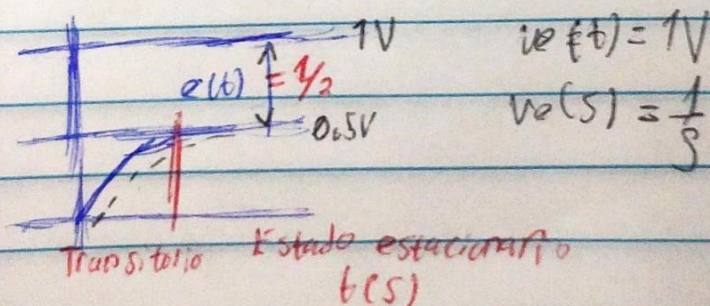 1V
ve(t) = 1V
e(t) = 1/2
ve(s) = 1/s
0.5V
Transitorio Estado estacionario
t(s)